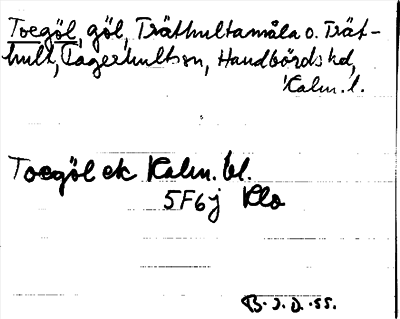 Toegöl, göl, Träthultamåla o. Trät-
hult, Fagerhults sn, Handbörds hd,
Kalm. l.
Toegöl ek Kalm. bl.
5F6j Klo
B. J. D. -55.